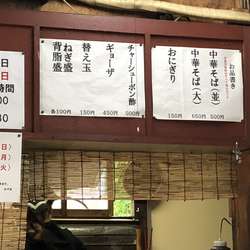 お品書き
中華そば(並)
中華そば(大)
おにぎり
550円
650円
150円
チャーシューポン酢
ギョーザ
替え玉
ねぎ盛
背脂盛
500円
450円
150円
各100円
日
日
時間
00
30
日)
月)
火)